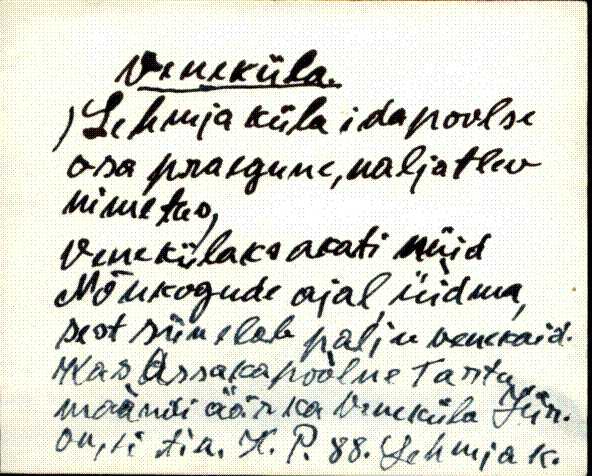 Veneküla.
) Lehmja küla idapoolse
osa praegune, naljatlev
nimetus,
Venekülaks akati nüid
Nõukogude ajal üidma,
sest siin elab palju venekaid.
Kas Assakapoolne Tartu
maandi äär ka Veneküla Jür.
on, ei tia. K. P. 88. Lehmja k.